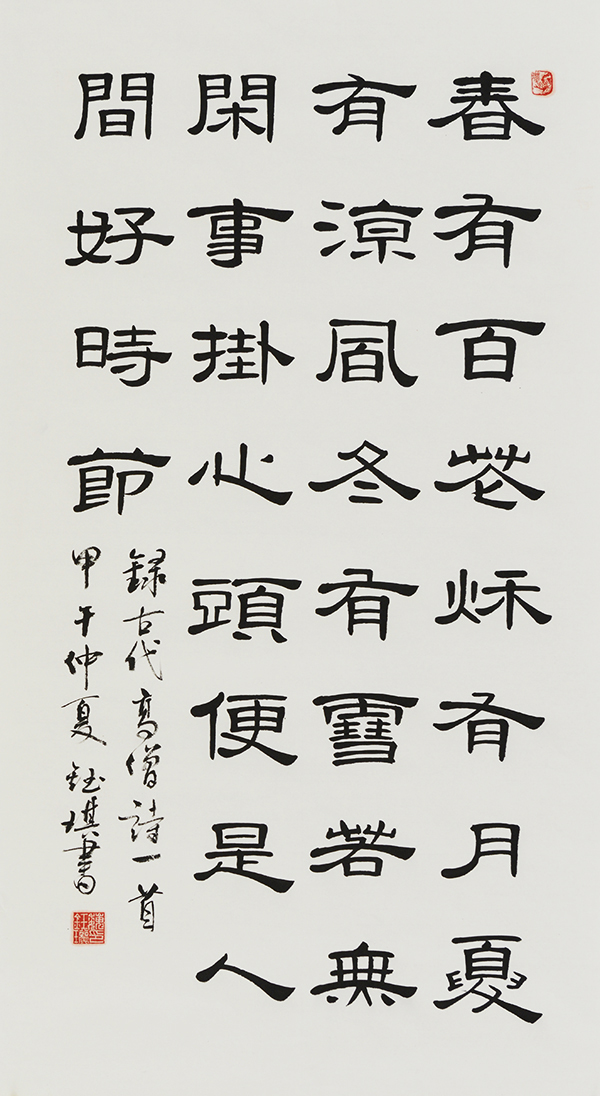 春有百花秌有月夏
有涼風冬有雪若無
閑事掛心頭便是人
間好時節
録古代高僧詩一首
甲午仲夏鈺琪書